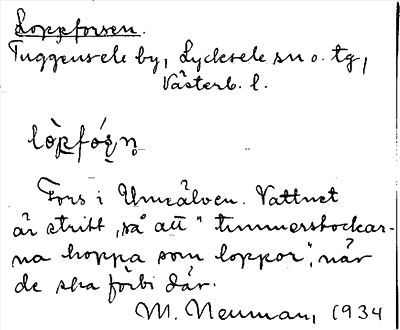 Loppforsen.
Tuggensele by, Lycksele sn o. tg,
Västerb. l.
Fors i Umeälven. Vattnet
är stritt, så att "timmerstockar-
na hoppa som loppor", när
de ska förbi där.
M. Neuman, 1934